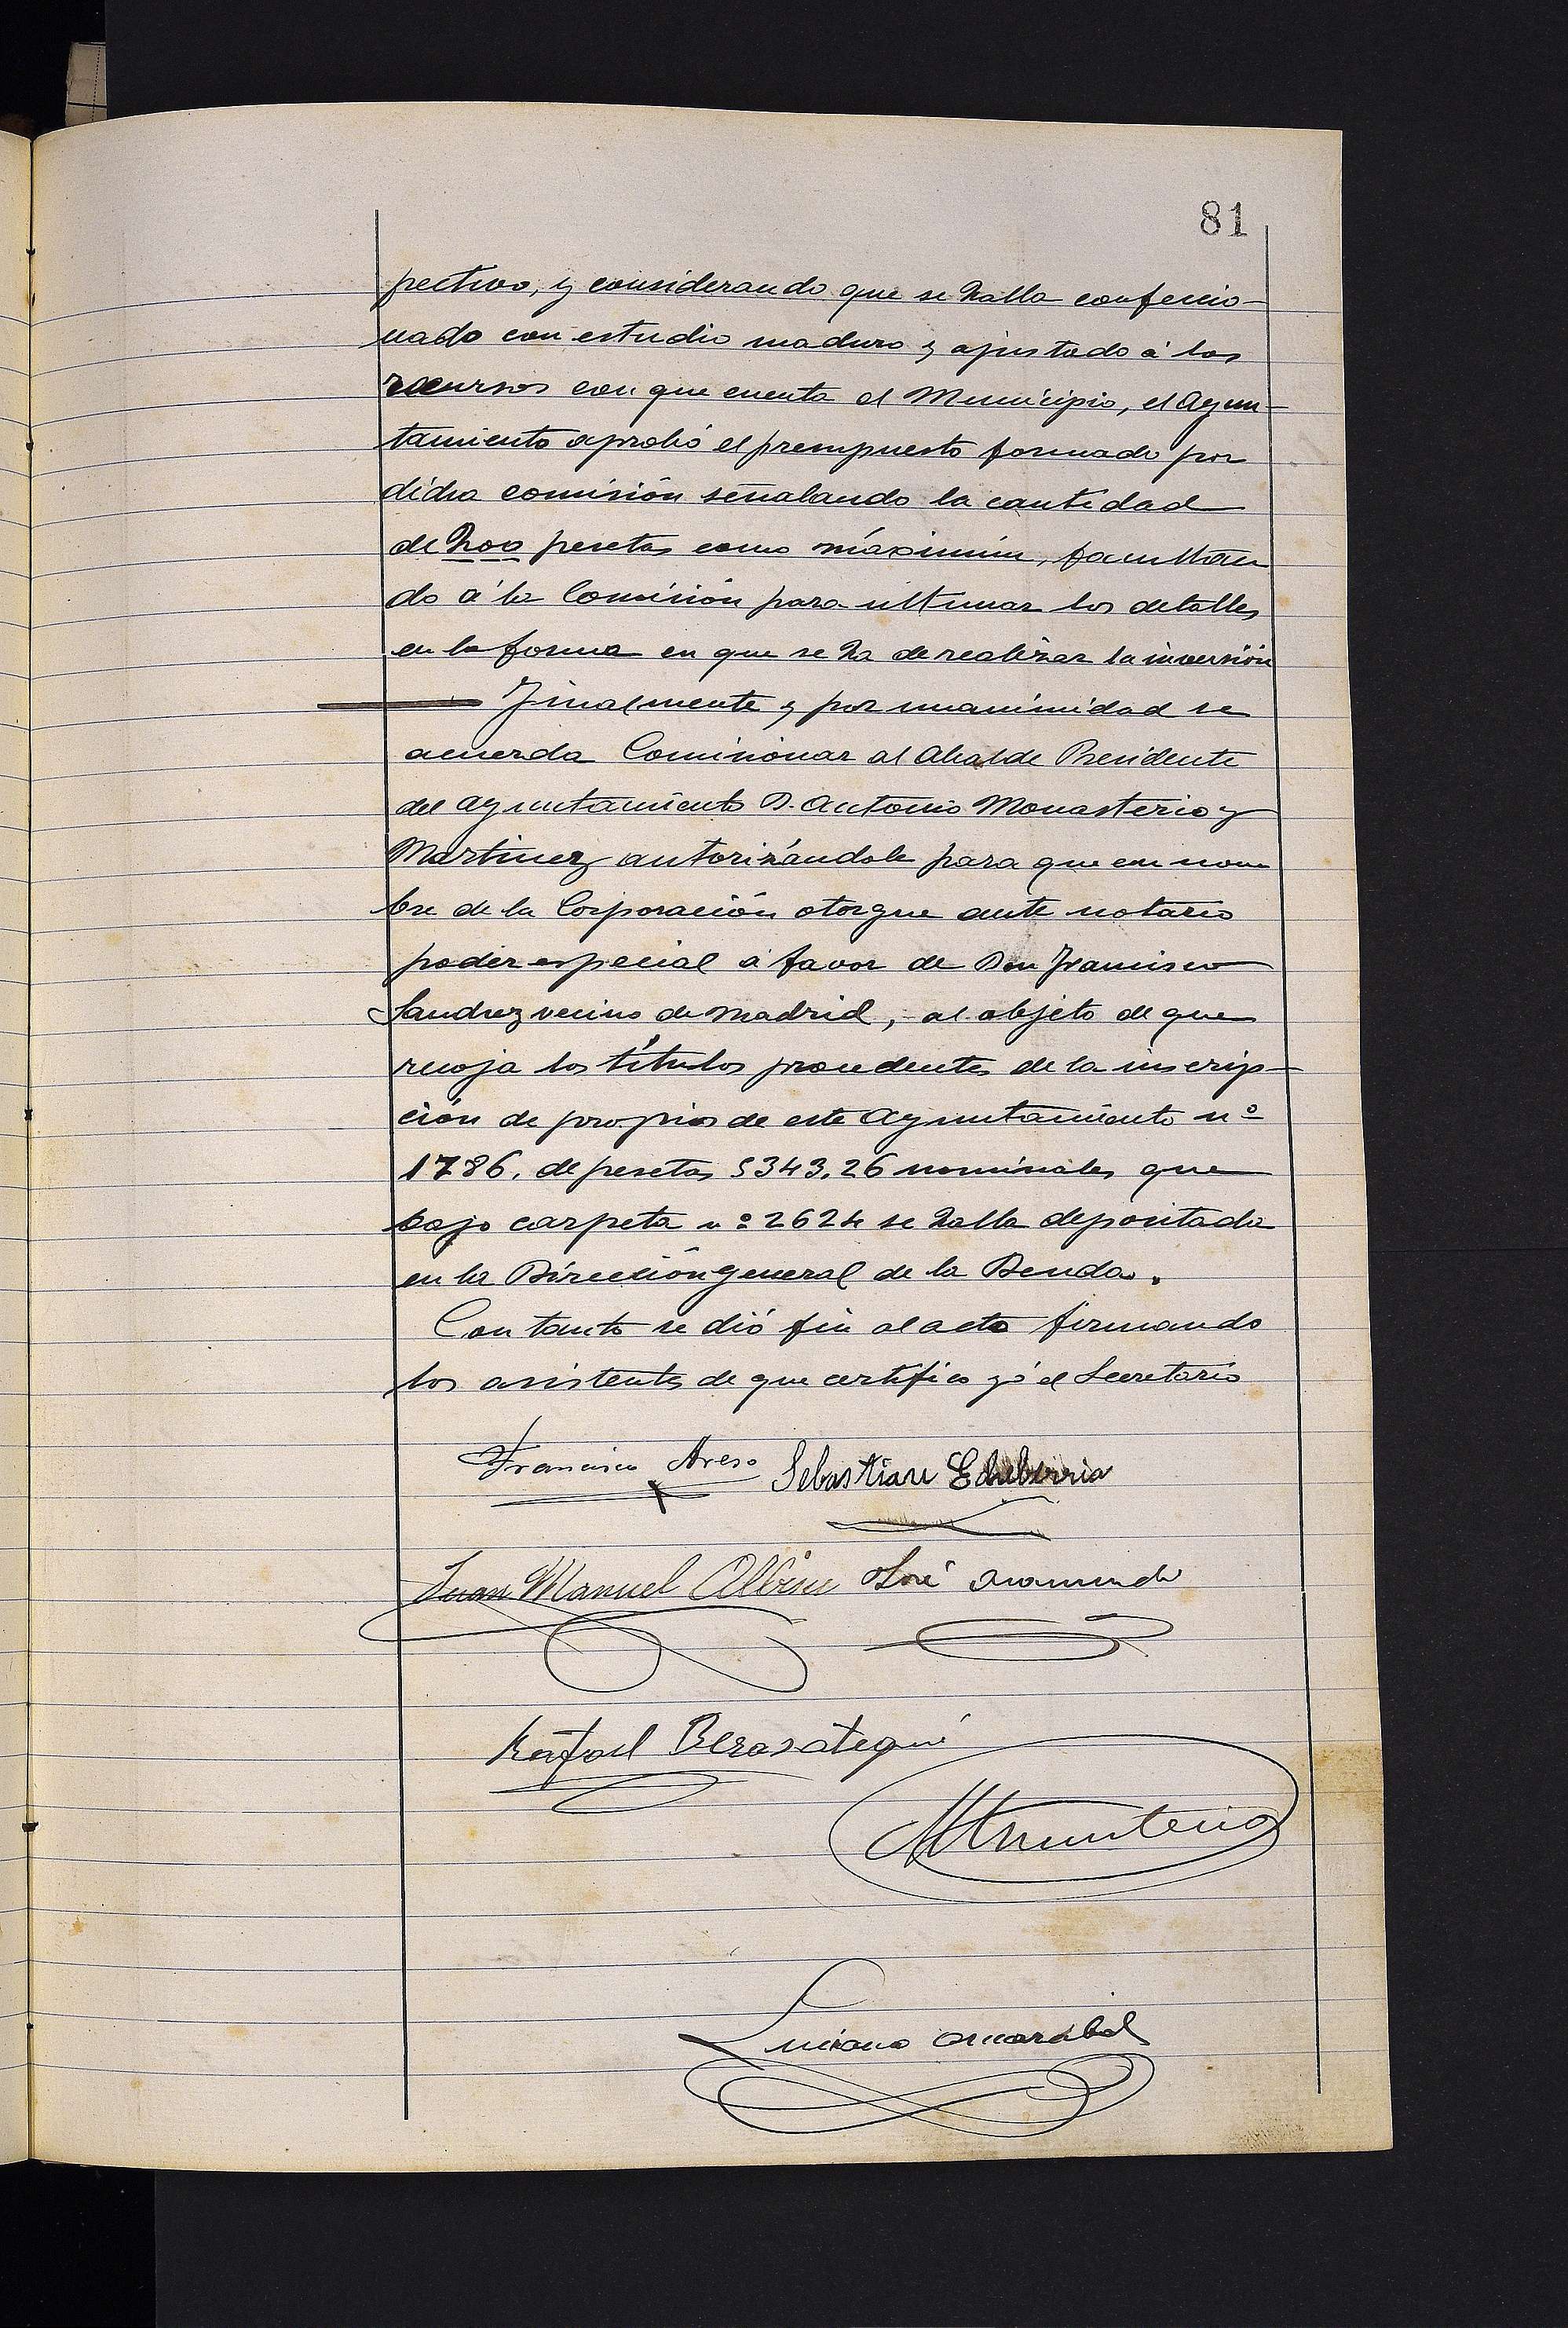 81
pectivo, y considerando que se halla confeccio-
nado con estudio maduro y ajustado á los
recursos con que cuenta el Municipio, el Ayun-
tamiento aprobó el presupuesto formado por
dicha comisión señalando la cantidad
de pesetas como máximum, facultan
do á la Comisión para ultimar los detalles
en la forma en que se ha de realizar la inversión
Finalmente y por unanimidad se
acuerda Comisionar al Alcalde Presidente
del Ayuntamiento D. Antonio Monasterio y
Martinez autorizándole para que en nom
bre de la Corporación otorgue ante notario
poder especial á favor de Don Francisco
Sanchez vecino de Madrid, al objeto de que
recoja los títulos procedentes de la inscrip-
ción de propios de este Ayuntamiento nº
1786, de pesetas 5343,26 nominales que
bajo carpeta nº 2624 se halla depositada
en la Dirección general de la Deuda.
Con tanto se dió fin al acto firmando
los asistentes de que certifico yó el Secretario
Francisco Areso Sebastian Echeberria
Juan Manuel Albisu José
Rafael Berasategui
Monasterio
Luciano